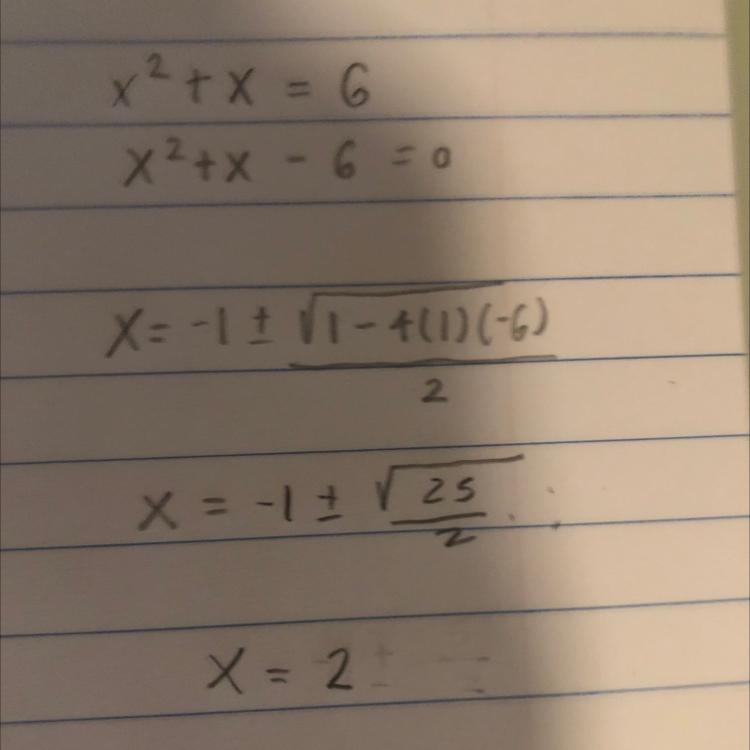 x² + x = 6
x² + x - 6 = 0
x = -1 ± √1 - 4(1)(-6)
2
x = -1 ± √25
2
x = 2